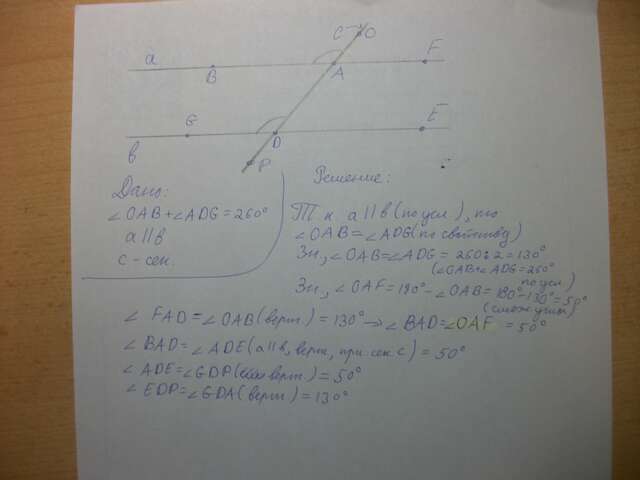 c O
a B A F
G D E
в P
Дано:
∠OAB+∠ADG=260°
a||в
c-сек.
Решение:
Т к a||в (по усл), то
∠OAB=∠ADG(по св-ву)
Зн, ∠OAB=∠ADG = 260:2=130°
(∠OAB+∠ADG=260° по усл)
Зн, ∠OAF=180°-∠OAB=180°-130°=50°
(смеж углы)
∠FAD=∠OAB(верт.)=130°→∠BAD=∠OAF=50°
∠BAD=∠ADE(a||в, верт, при сек c)=50°
∠ADE=∠GDP(верт.)=50°
∠EDP=∠GDA(верт.)=130°